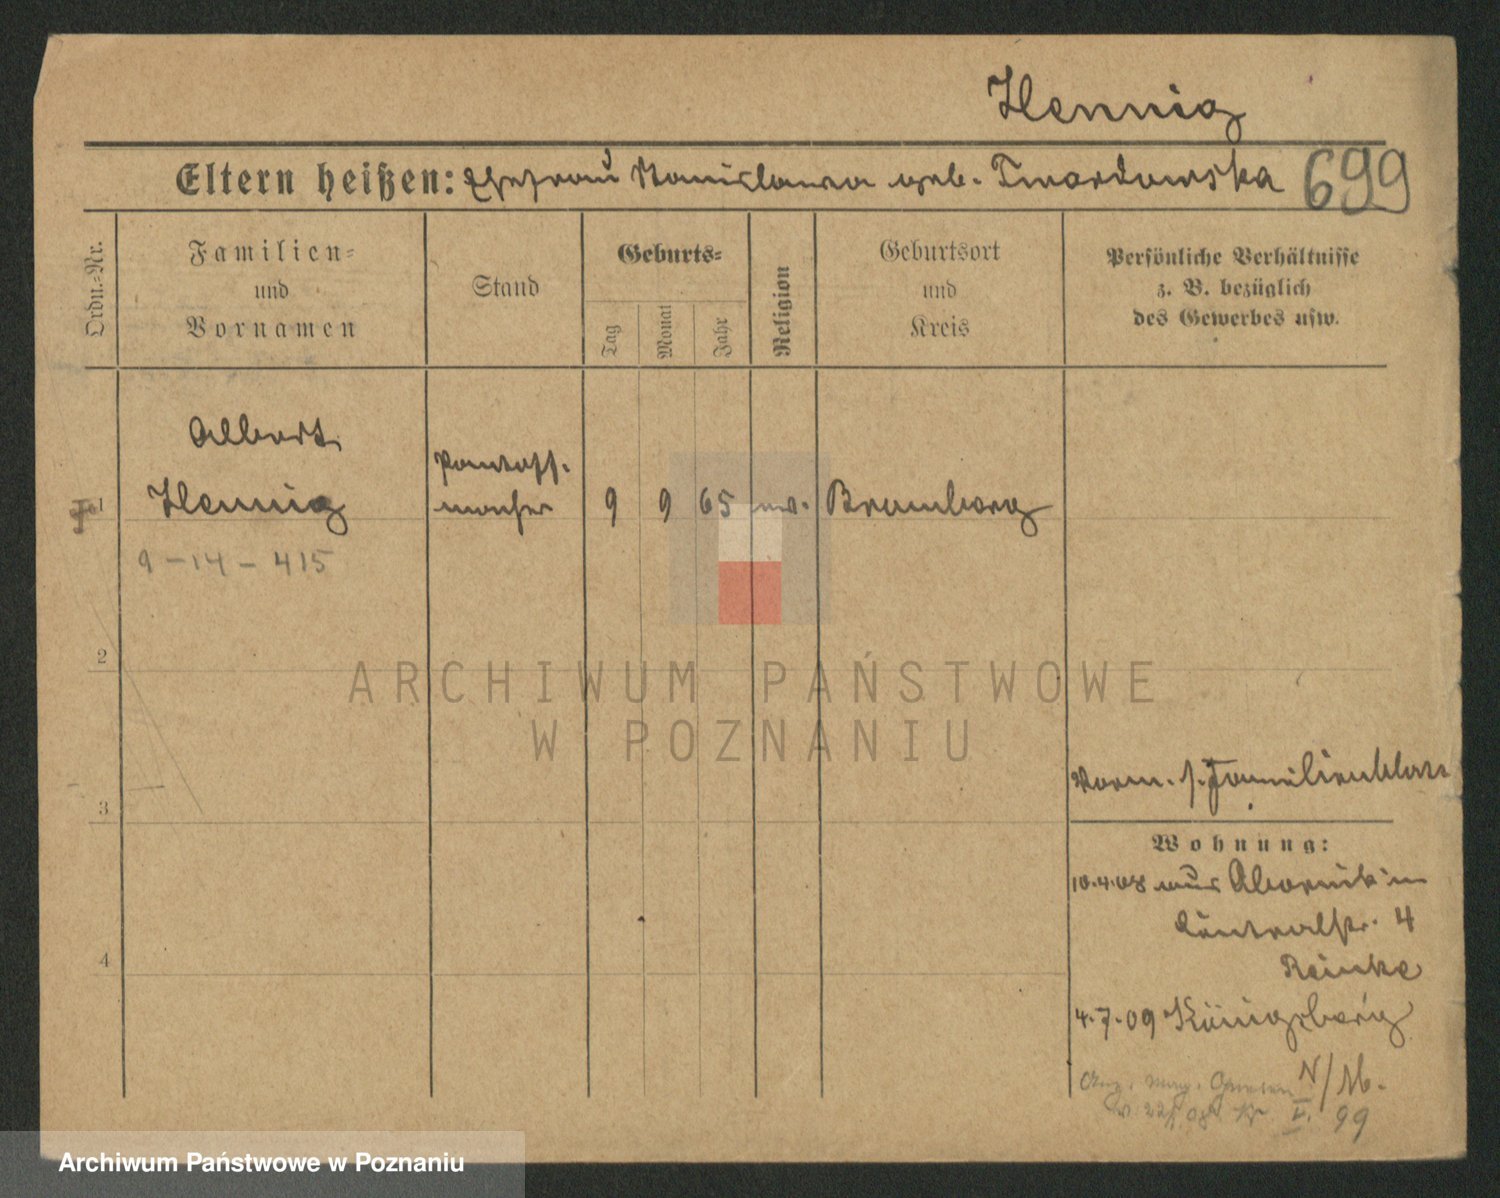 Hennig
Eltern heißen: Ehefrau Stanislawa geb. Twardowska 699
Ordn.-Nr.
Familien-
und
Vornamen
Stand
Geburts-
Tag
Monat
Jahr
Religion
Geburtsort
und
Kreis
Persönliche Verhältnisse
z. B. bezüglich
des Gewerbes usw.
Albert
Pantoff-
1 Hennig macher 9 9 65 ev. Bromberg
9 - 14 - 415
2
ARCHIWUM PAŃSTWOWE
W POZNANIU
Vorm. s. Familienblatt
3
Wohnung:
10.4.08 aus Obornik in
Zentralstr. 4
4 Reinke
4.7.09 Königsberg
N/16.
99
Archiwum Państwowe w Poznaniu